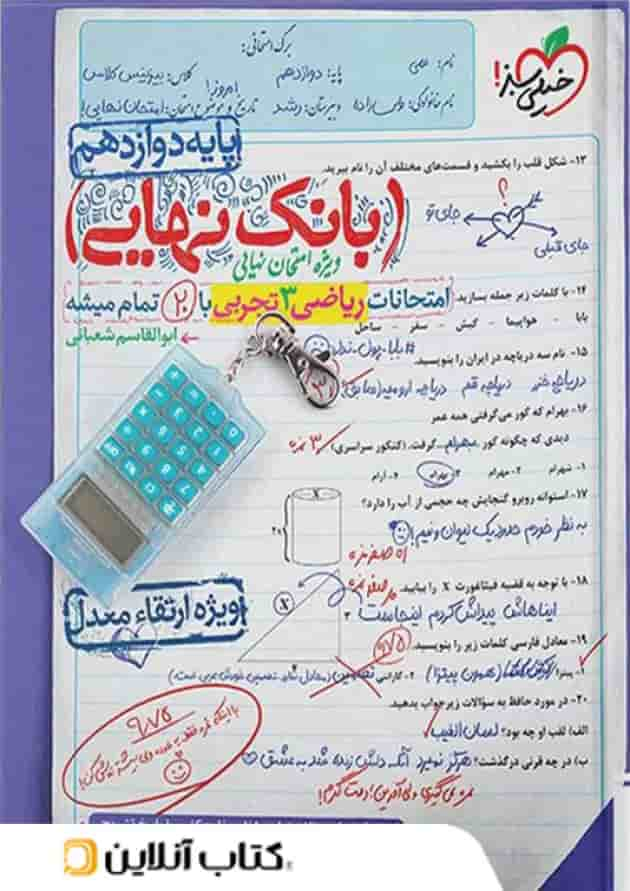 خیلی سبز!
برگ امتحانی:
نام:
پایه: دوازدهم
کلاس: بیزینس کلاس
نام خانوادگی:
دبیرستان: رشد
تاریخ و موضوع امتحان: امتحان نهایی!
امروز!
پایه دوازدهم
۱۳- شکل قلب را بکشید و قسمت‌های مختلف آن را نام ببرید.
؟
جای تو
جای قبلی
(بانک نهایی)
ویژه امتحان نهایی
امتحانات ریاضی ۳ تجربی با ۲۰ تمام میشه
ابوالقاسم شعبانی
۱۴- با کلمات زیر جمله بسازید.
بابا - هواپیما - کیش - سفر - ساحل
۱۵- نام سه دریاچه در ایران را بنویسید.
دریاچه خزر دریاچه قم دریاچه ارومیه
۱۶- بهرام که گور می‌گرفتی همه عمر
دیدی که چگونه گور بهرام گرفت. (کنکور سراسری)
۱- شهرام ۲- مهرام ۳- بهرام ۴- آرام
۱۷- استوانه روبرو گنجایش چه حجمی از آب را دارد؟
X
2x
به نظر خودم حدود یک لیوان و نیم!
۱۸- با توجه به قضیه فیثاغورث X را بیابید.
ایناهاش پیداش کردم اینجاست
X
۳
۴
ویژه ارتقاء معدل
۱۹- معادل فارسی کلمات زیر را بنویسید.
۱- پیتزا (همون پیتزا) ۲- گارانتی
۲۰- در مورد حافظ به سؤالات زیر جواب بدهید.
الف) لقب او چه بود؟ لسان الغیب
ب) در چه قرنی درگذشت؟ هرگز نمیرد آنکه دلش زنده شد به عشق
۹/۷۵
کتاب آنلاین